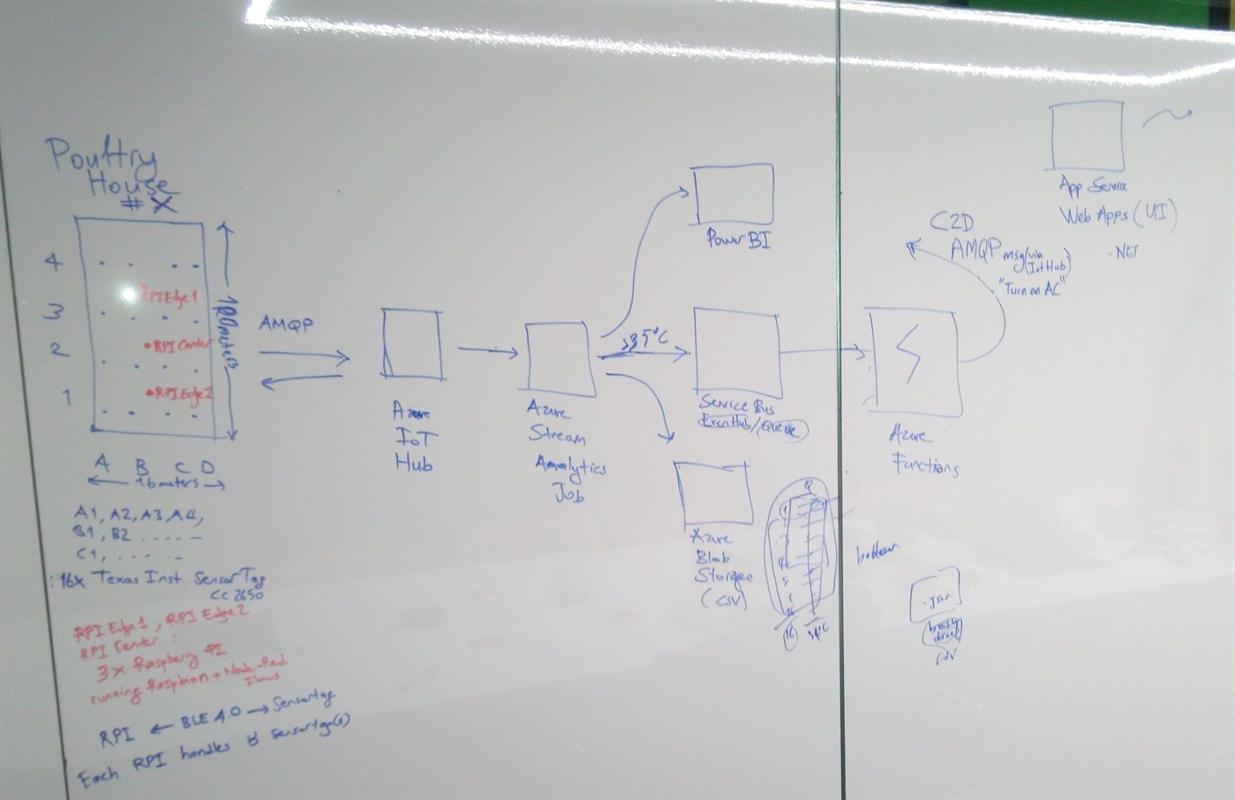 Poultry
House
# X
4
3
2
1
RPI Edge1
RPI Center
RPI Edge2
120 meters
A B C D
16 meters
A1, A2, A3, A4,
B1, B2 . . . . . –
C1, . . . . –
: 16x Texas Inst. SensorTag
CC2650
RPI Edge1, RPI Edge2
RPI Center :
3x Raspberry PI
running Raspbian + Node-Red
flows
RPI ← BLE 4.0 → Sensortag
Each RPI handles 8 Sensortag(s)
AMQP
Azure
IoT
Hub
Azure
Stream
Analytics
Job
Power BI
>35°C
Service Bus
EventHub/Queue
Azure
Blob
Storage
(CSV)
Azure
Functions
C2D
AMQP msg(via
IotHub)
"Turn on AC"
App Service
Web Apps (UI)
.NET
.json